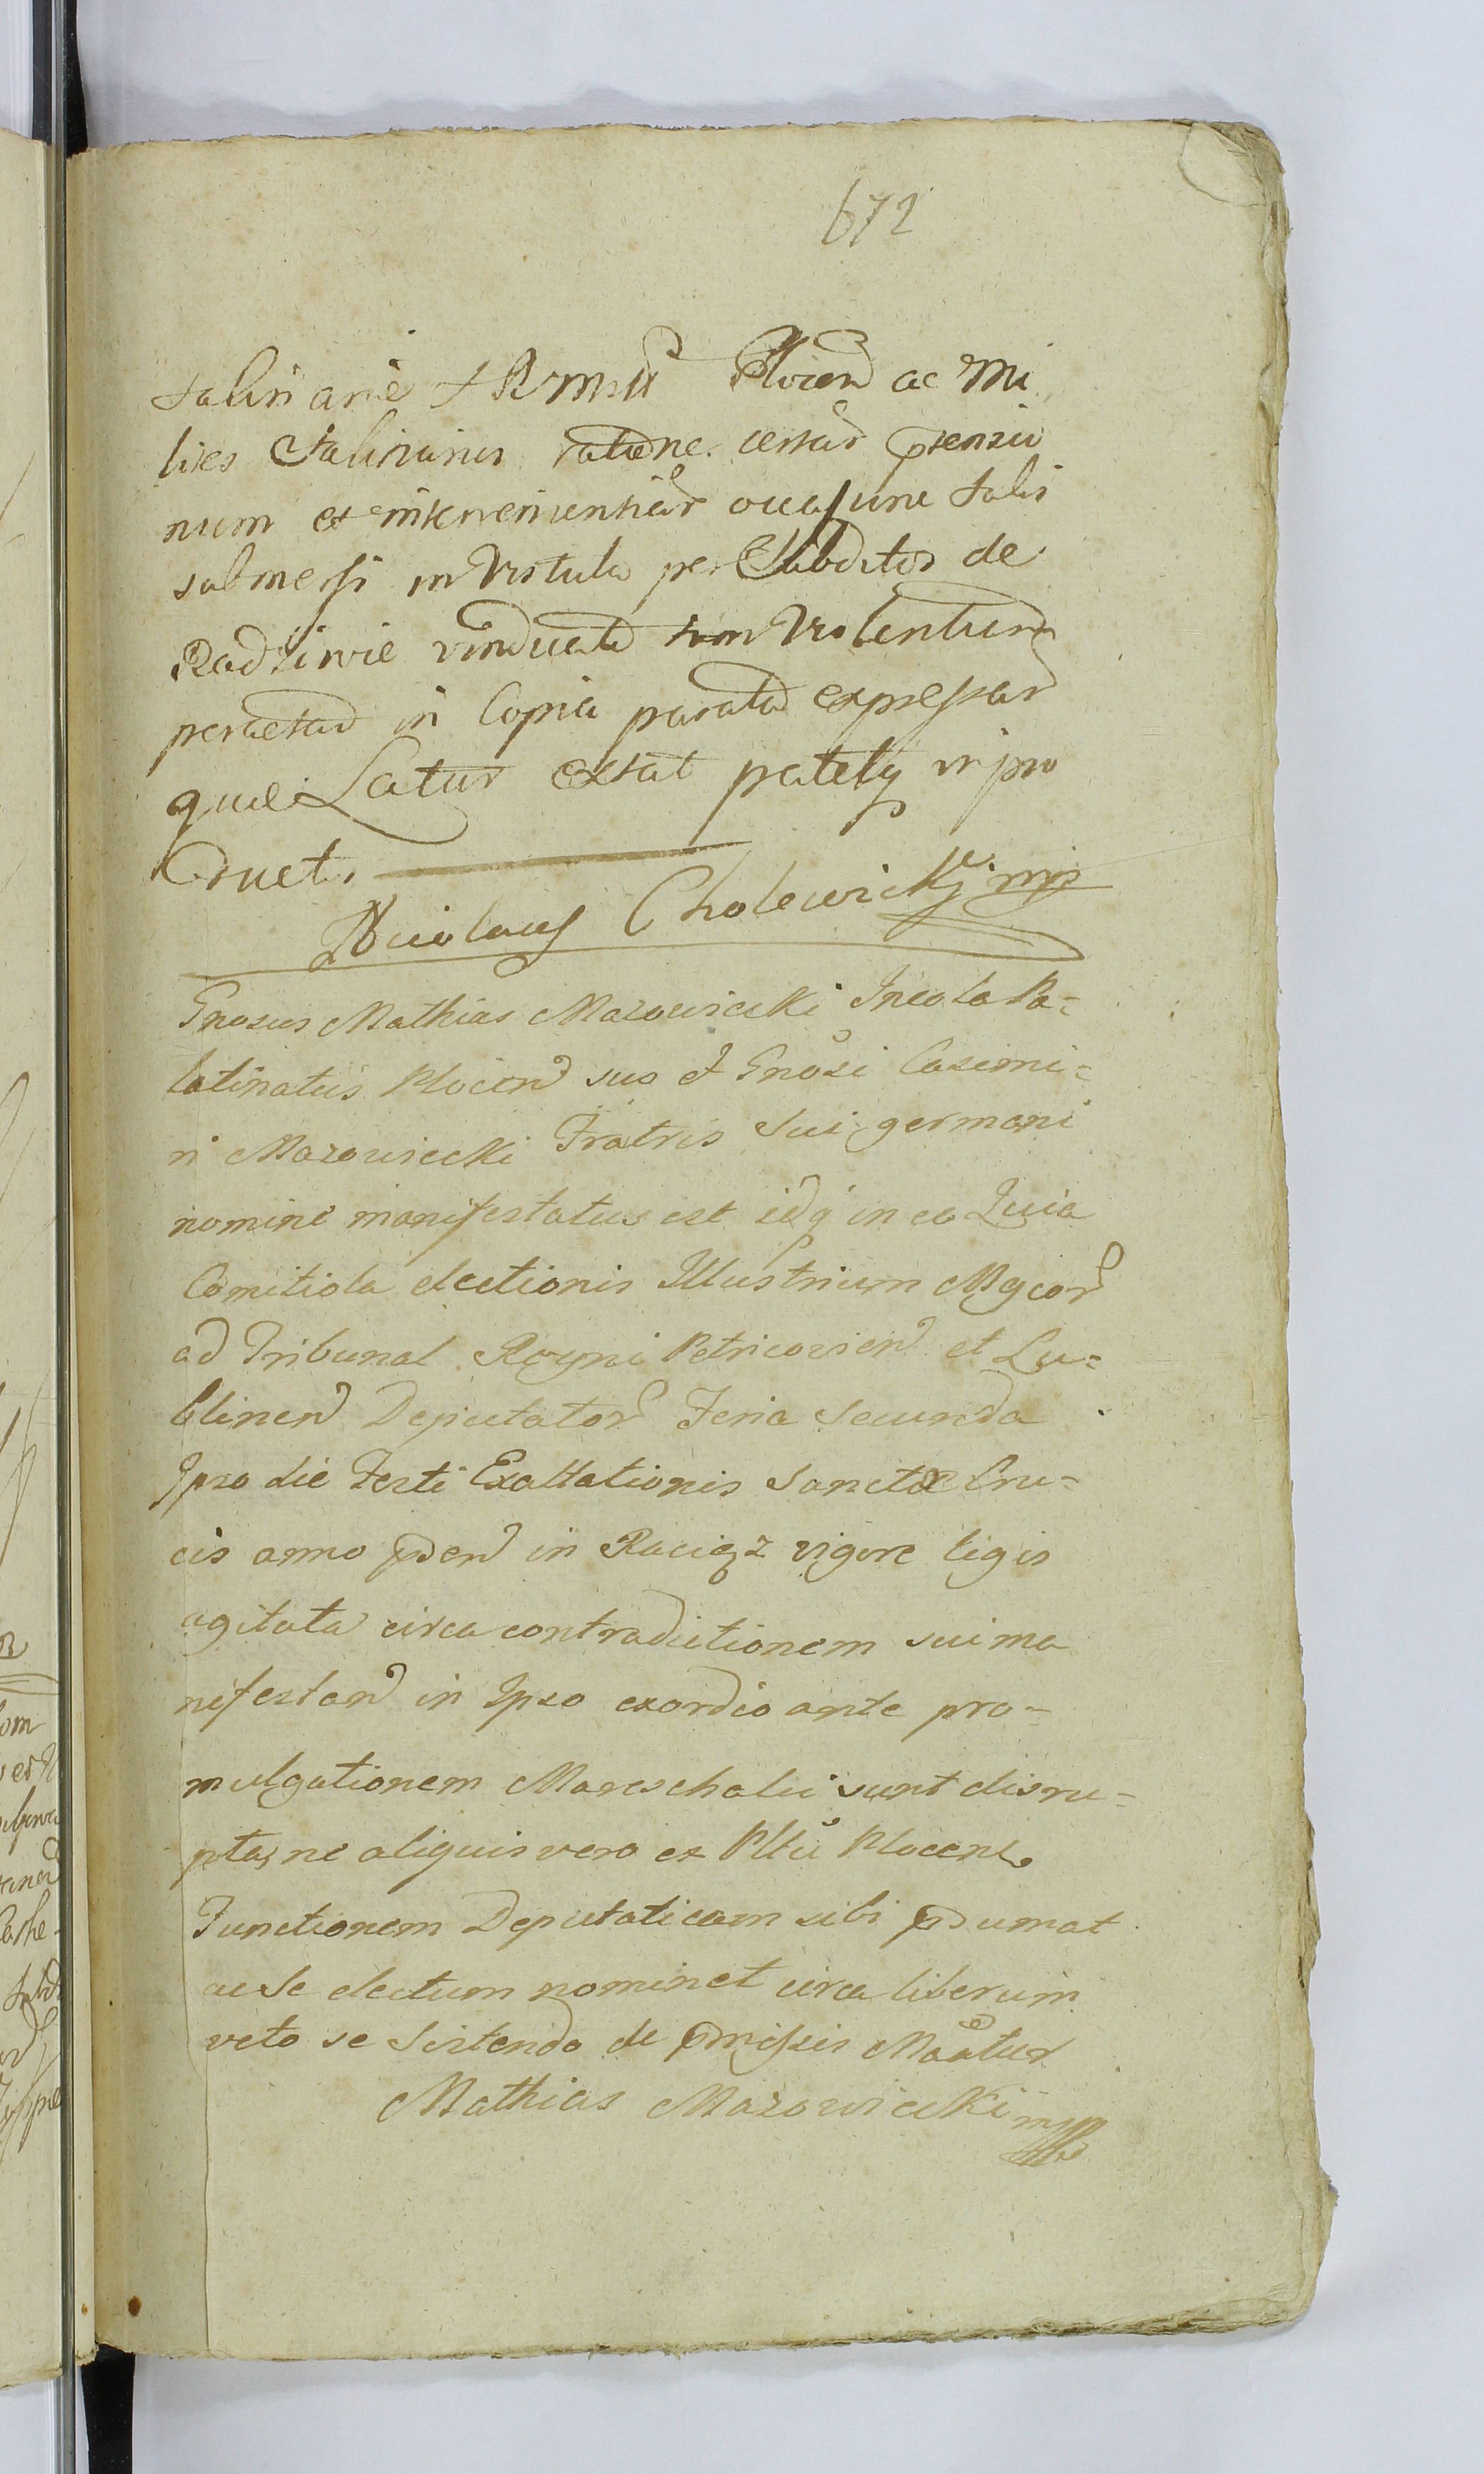 672
salin arie Plocen ac Mi
lites Salinarius ratione certar ptensio
num et intervenientiar occasione salis
submersi in Vistula per Subditos de
Radziwie vinducata Violentiam
peractar in Copia parata expressar
quae Latur extat patetq in pro
tduct.
Nicolaus Cholewicki mp
Gnosus Mathias Mazowiecki Incola Pa=
latinatus Plocen suo et Gnosi Casimi=
ri Mazowiecki Fratris Sui germani
nomine manifestatus est idq in eo Quia
Comitiola electionis Illustrium Mgcor
ad Tribunal Regni Petricovien et Lu=
blinen Deputator Feria Secunda
Ipso die Festi Exaltationis Sanctæ Cru=
cis anno pden in Raciąz vigore legis
agitata circa contradictionem sui ma
nifestan in Ipso exordio ante pro=
mulgationem Mareschalci sunt disru=
pta, ne aliquis vero ex Pltu Plocen
Functionem Deputaticam sibi pdumat
ac se electum nominet circa liberum
veto se Sistendo de pmissis Maatur
Mathias Mazowiecki mp